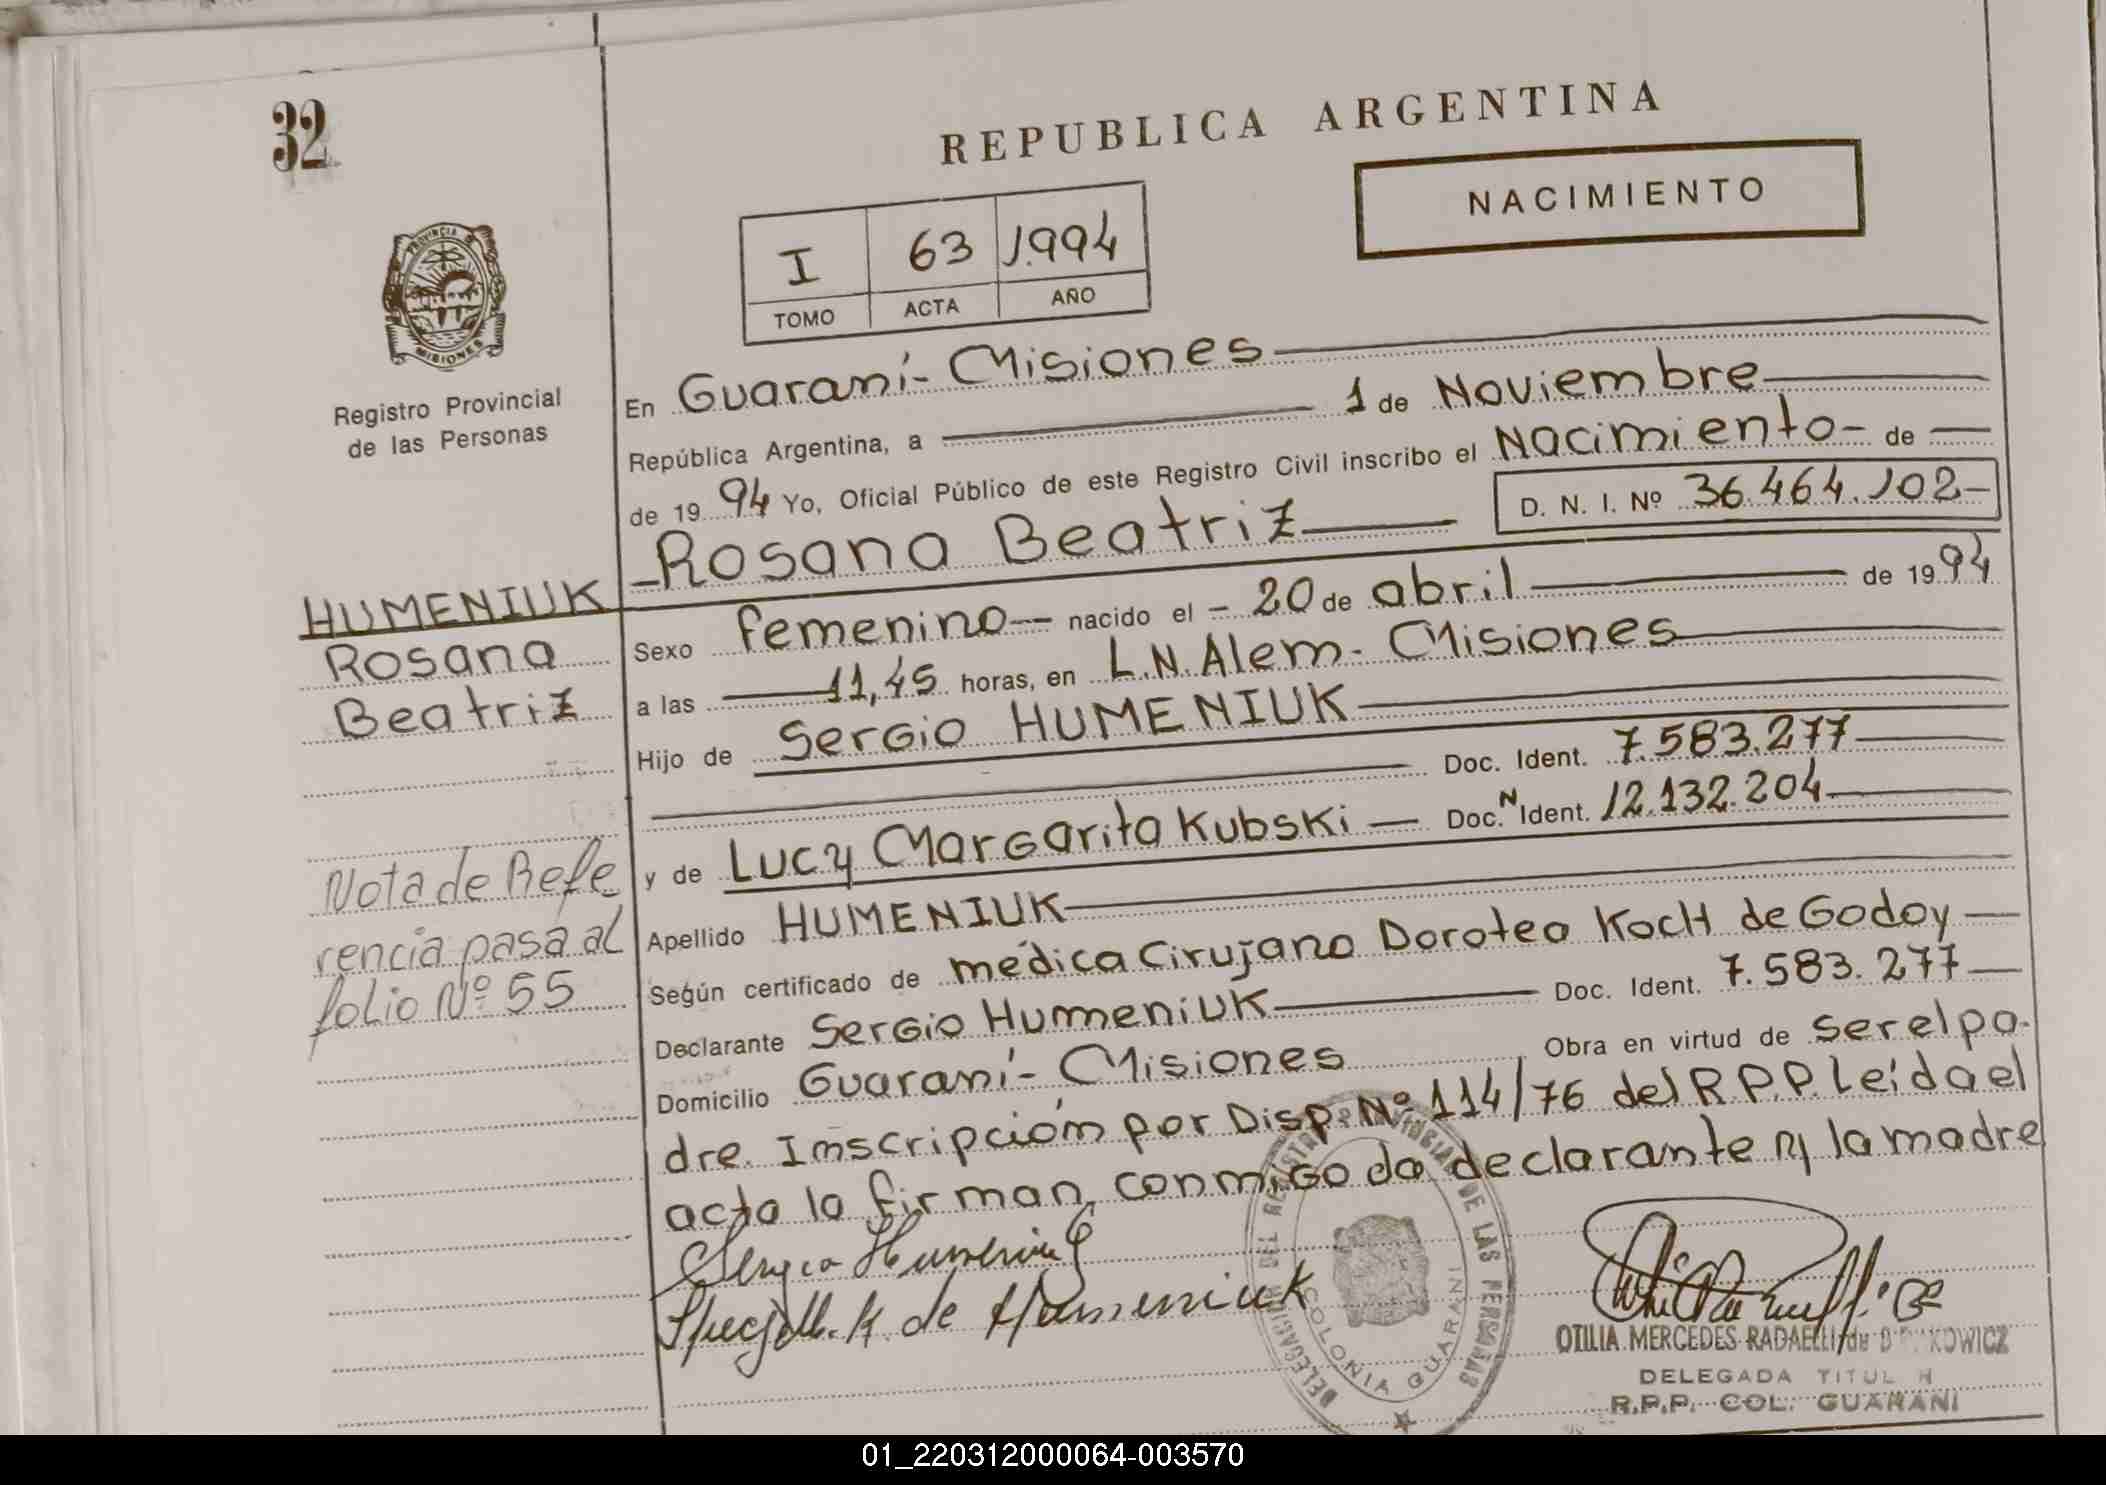 32
REPUBLICA ARGENTINA
NACIMIENTO
I 63 1.994
TOMO ACTA AÑO
PROVINCIA D
MISIONES
Registro Provincial
de las Personas
En Guaraní - Misiones
República Argentina, a 1 de Noviembre
de 19 94 Yo, Oficial Público de este Registro Civil inscribo el Nacimiento - de
D. N. I. Nº 36.464.102-
Rosana Beatriz
HUMENIUK
Rosana
Beatriz
Sexo femenino nacido el - 20 de abril de 19 94
a las 11,45 horas, en L.N. Alem - Misiones
Hijo de Sergio HUMENIUK
Doc. Ident. 7.583.277
y de Lucy Margarita Kubski Doc. N Ident. 12.132.204
Nota de Refe
rencia pasa al
folio Nº 55
Apellido HUMENIUK
Según certificado de médica Cirujano Dorotea Koch de Godoy
Declarante Sergio Humeniuk Doc. Ident. 7.583.277
Domicilio Guaraní - Misiones Obra en virtud de ser el pa-
dre. Inscripción por Disp. Nº 114/76 del R.P.P. Leída el
acta la firman conmigo da declarante y la madre
Sergio Humeniuk
K. de Humeniuk
DELEGACION DEL REGISTRO PROVINCIAL DE LAS PERSONAS
COLONIA GUARANI
OTILIA MERCEDES RADAELLI de
DELEGADA TITUL
R.P.P. COL. GUARANI
01_220312000064-003570